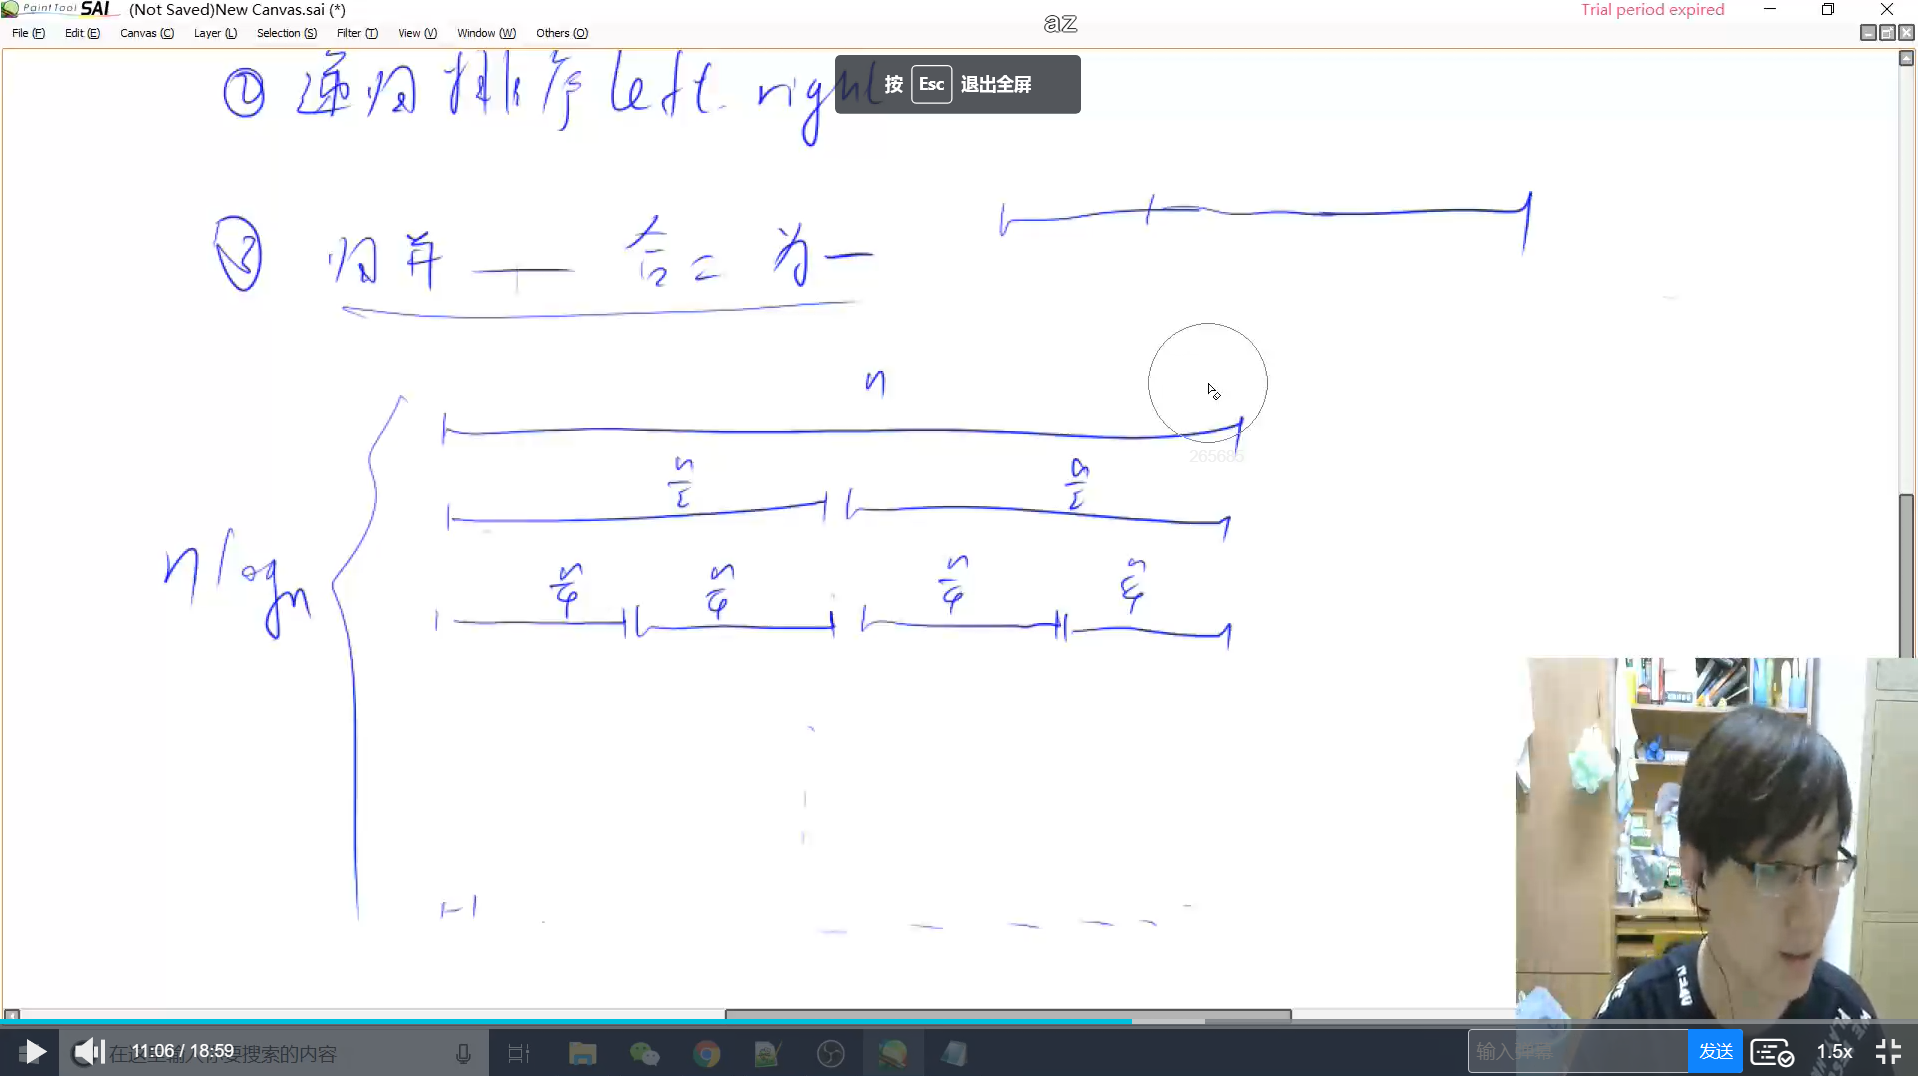 PaintTool SAI (Not Saved)New Canvas.sai (*)
az
Trial period expired
File (F) Edit (E) Canvas (C) Layer (L) Selection (S) Filter (T) View (V) Window (W) Others (O)
② 递归排序 left right
按 Esc 退出全屏
③ 归并 — 合二为一
n
265685
n/2 n/2
n/4 n/4 n/4 n/4
n log n
11:06 / 18:59
在这里输入你要搜索的内容
输入弹幕
发送
1.5x